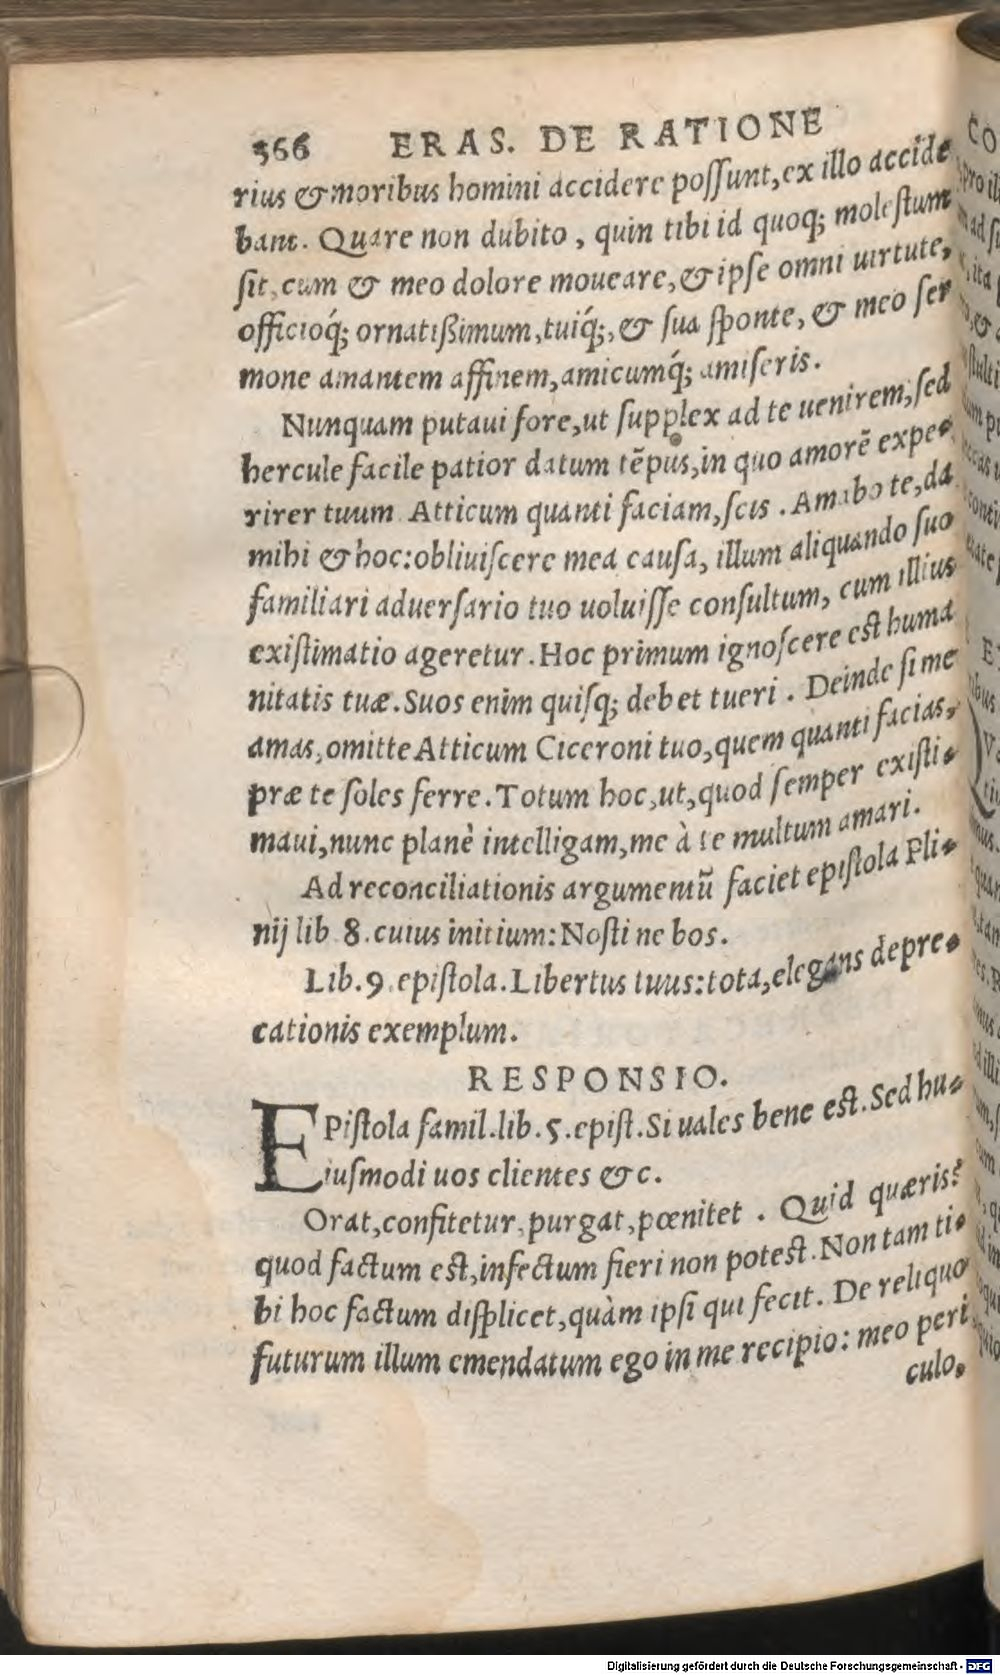 366 ERAS. DE RATIONE
rius & moribus homini accidere possunt, ex illo accide
bant. Quare non dubito, quin tibi id quoq; molestum
sit, cum & meo dolore moueare, & ipse omni uirtute,
officioq́; ornatißimum, tuiq́;, & sua sponte, & meo ser
mone amantem affinem, amicumq́; amiseris.
Nunquam putaui fore, ut supplex ad te uenirem, sed
hercule facile patior datum tẽpus, in quo amorẽ expe-
rirer tuum. Atticum quanti faciam, scis. Amabo te, da
mihi & hoc: obliuiscere mea causa, illum aliquando suo
familiari aduersario tuo uoluisse consultum, cum illius
existimatio ageretur. Hoc primum ignoscere est huma
nitatis tuæ. Suos enim quisq; debet tueri. Deinde si me
amas, omitte Atticum Ciceroni tuo, quem quanti facias,
præ te soles ferre. Totum hoc, ut, quod semper existi-
maui, nunc planè intelligam, me à te multum amari.
Ad reconciliationis argumentũ faciet epistola Pli-
nij lib. 8. cuius initium: Nosti ne hos.
Lib. 9. epistola. Libertus tuus: tota, elegans depre-
cationis exemplum.
RESPONSIO.
EPistola famil. lib. 5. epist. Si uales bene est. Sed hu-
iusmodi uos clientes &c.
Orat, confitetur, purgat, pœnitet. Quid quæris?
quod factum est, infectum fieri non potest. Non tam ti-
bi hoc factum displicet, quàm ipsi qui fecit. De reliquo
futurum illum emendatum ego in me recipio: meo peri
culo.
Digitalisierung gefördert durch die Deutsche Forschungsgemeinschaft - DFG